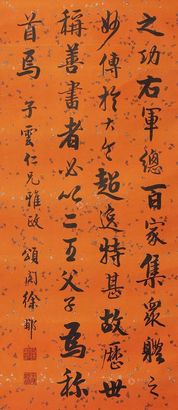 之功右軍總百家集衆體之
妙傳於大令超逸特甚故歷世
稱善書者必以二王父子爲稱
首焉 子雲仁兄雅政 頌閣徐郙